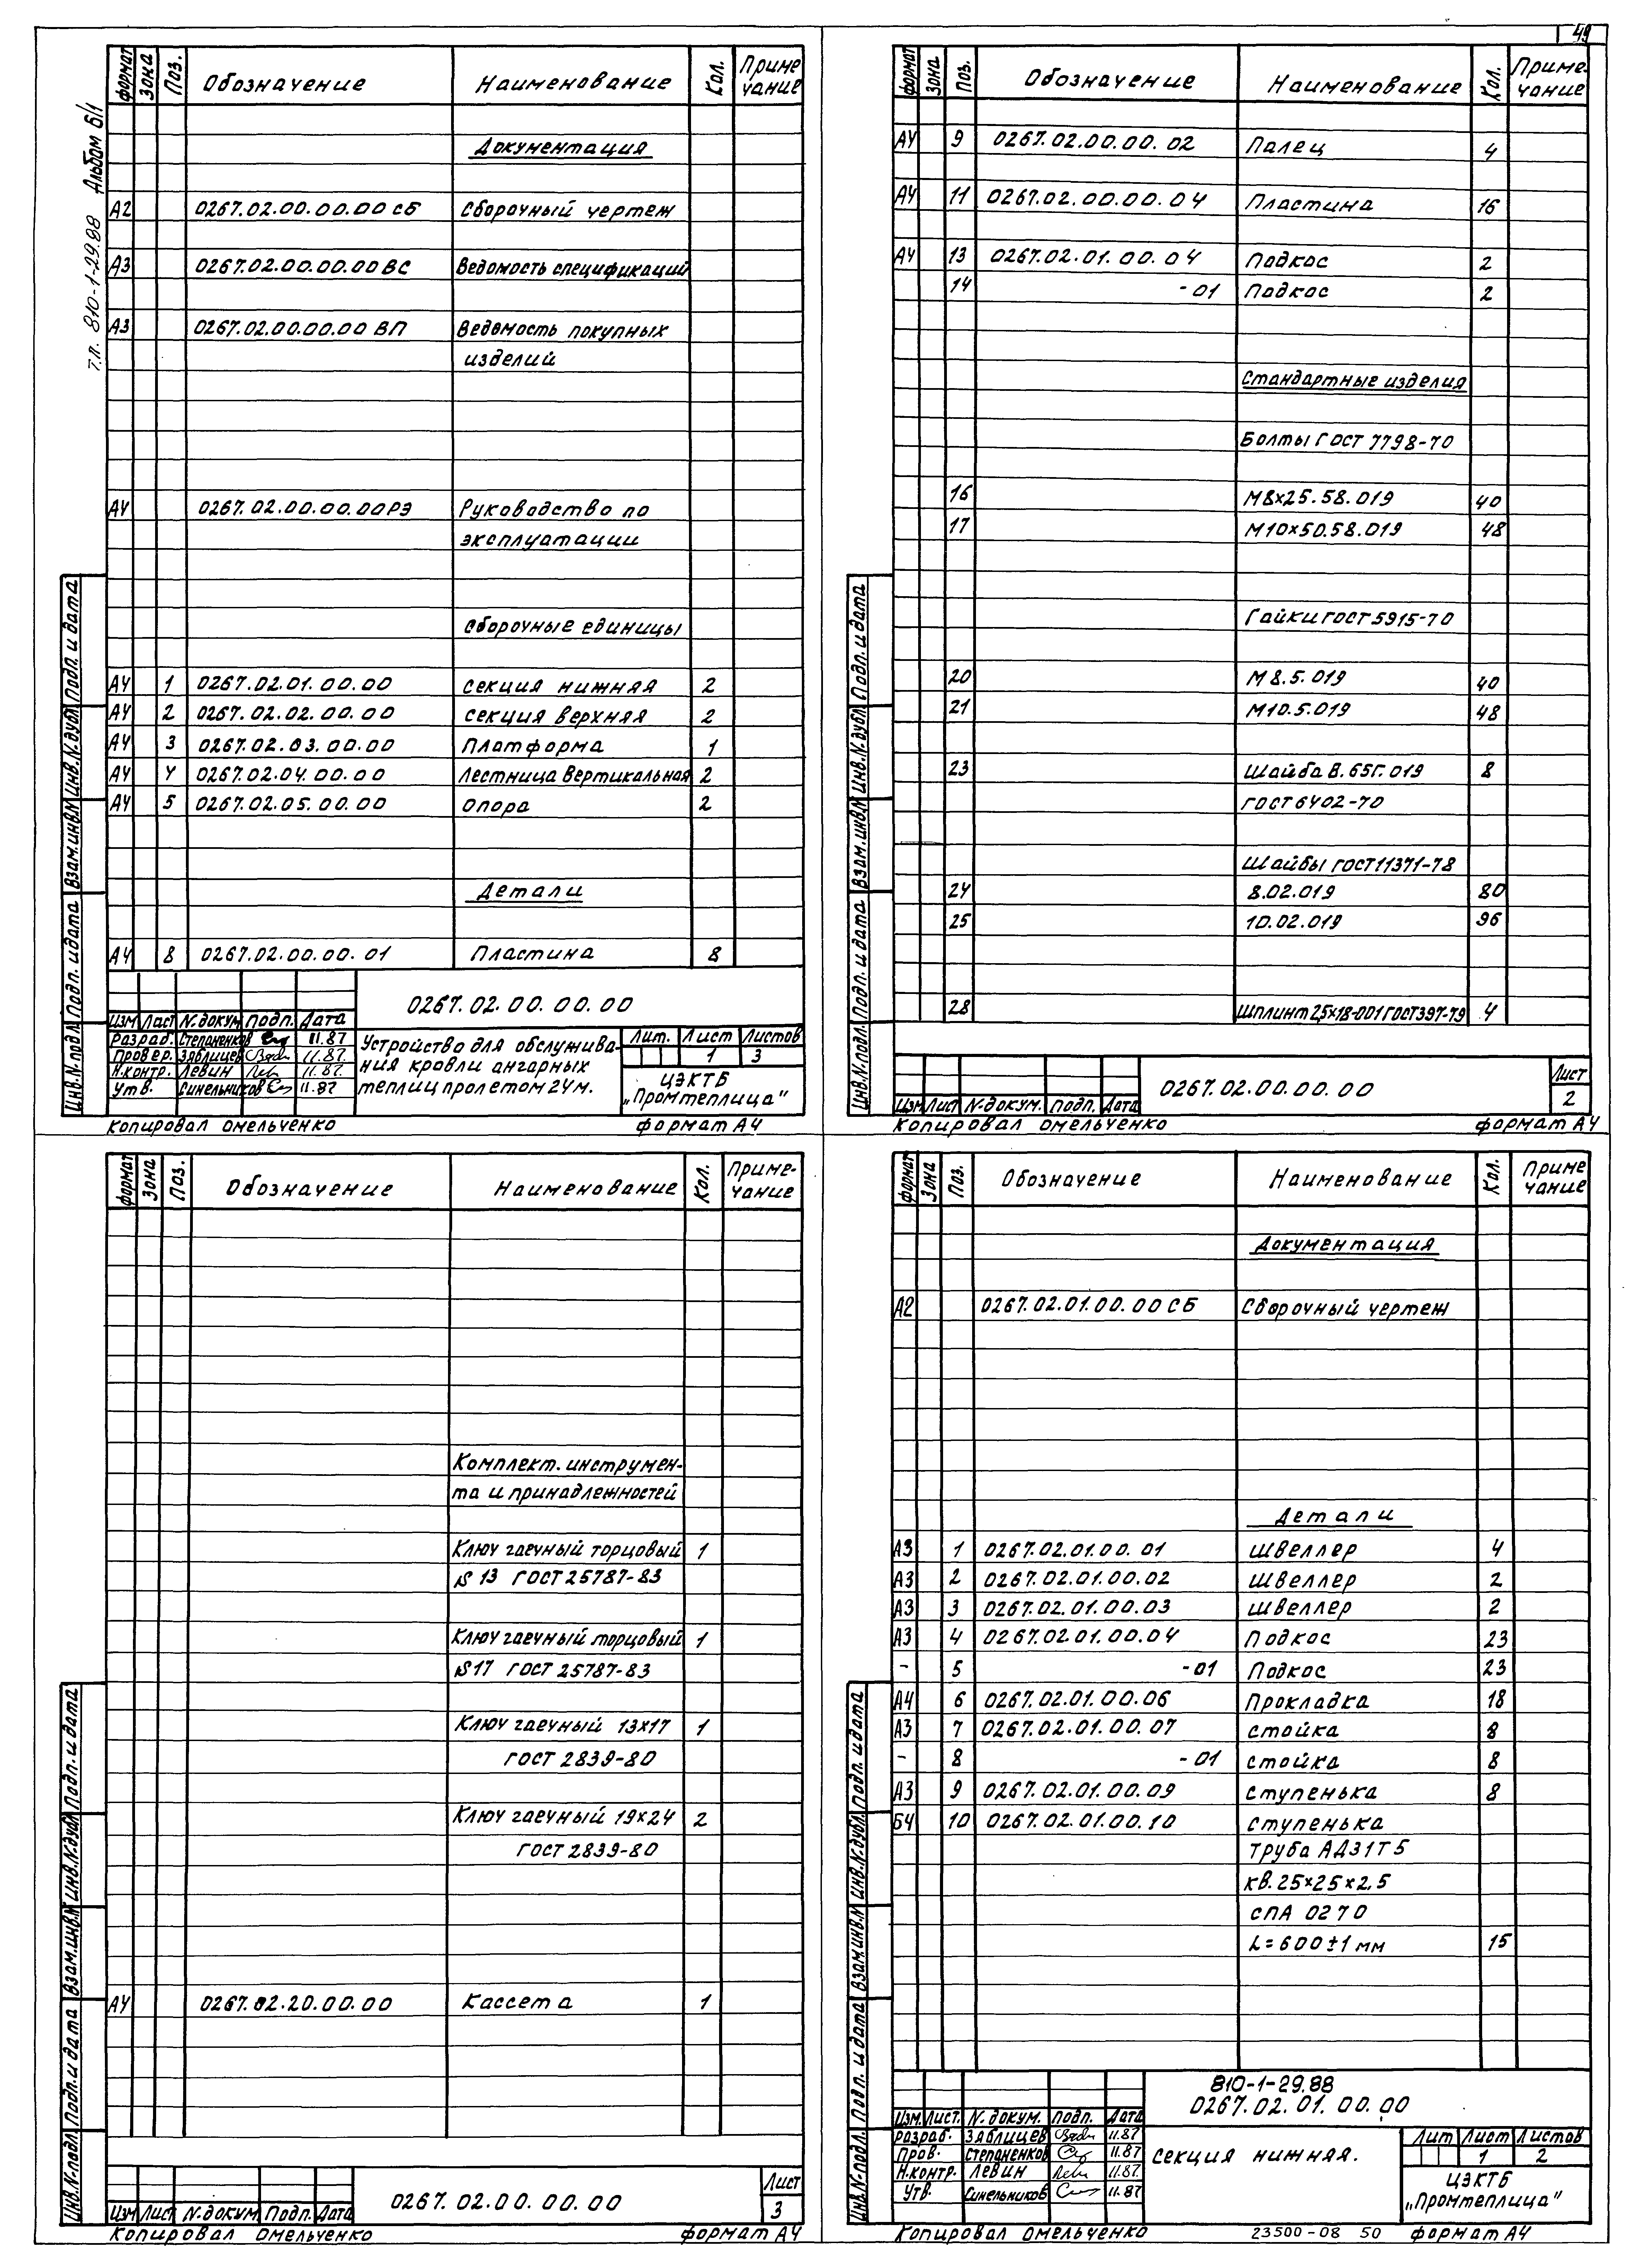 49
т.п. 810-1-29.88 Альбом 6/1
формат Зона Поз. Обозначение Наименование Кол. Приме
чание
Документация
А2 0267.02.00.00.00 СБ Сборочный чертеж
А3 0267.02.00.00.00 ВС Ведомость спецификаций
А3 0267.02.00.00.00 ВП Ведомость покупных
изделий
А4 0267.02.00.00.00 РЭ Руководство по
эксплуатации
Сборочные единицы
А4 1 0267.02.01.00.00 Секция нижняя 2
А4 2 0267.02.02.00.00 Секция верхняя 2
А4 3 0267.02.03.00.00 Платформа 1
А4 4 0267.02.04.00.00 Лестница вертикальная 2
А4 5 0267.02.05.00.00 Опора 2
Детали
А4 8 0267.02.00.00.01 Пластина 8
Инв.N.подл. Подп. и дата Взам.инв.N Инв.N.дубл. Подп. и дата
0267.02.00.00.00
Изм Лист N.докум Подп. Дата
Разраб. Степаненков 11.87
Провер. Зяблицев 11.87.
Н.контр. Левин 11.87.
Утв. Синельников 11.87
Устройство для обслужива-
ния кровли ангарных
теплиц пролетом 24м.
Лит. Лист Листов
1 3
ЦЭКТБ
„Промтеплица"
Копировал Омельченко формат А4
формат Зона Поз. Обозначение Наименование Кол. Приме-
чание
А4 9 0267.02.00.00.02 Палец 4
А4 11 0267.02.00.00.04 Пластина 16
А4 13 0267.02.01.00.04 Подкос 2
14 -01 Подкос 2
Стандартные изделия
Болты ГОСТ 7798-70
16 М8×25.58.019 40
17 М10×50.58.019 48
Гайки ГОСТ 5915-70
20 М8.5.019 40
21 М10.5.019 48
23 Шайба 8.65Г.019 8
ГОСТ 6402-70
Шайбы ГОСТ 11371-78
24 8.02.019 80
25 10.02.019 96
28 Шплинт 2,5×18-001 ГОСТ 397-79 4
Инв.N.подл. Подп. и дата Взам.инв.N Инв.N.дубл. Подп. и дата
0267.02.00.00.00
Лист
2
Изм Лист N.докум. Подп. Дата
Копировал Омельченко формат А4
формат Зона Поз. Обозначение Наименование Кол. Приме-
чание
Комплект инструмен-
та и принадлежностей
Ключ гаечный торцовый 1
S 13 ГОСТ 25787-83
Ключ гаечный торцовый 1
S17 ГОСТ 25787-83
Ключ гаечный 13×17 1
ГОСТ 2839-80
Ключ гаечный 19×24 2
ГОСТ 2839-80
А4 0267.02.20.00.00 Кассета 1
Инв.N.подл. Подп. и дата Взам.инв.N Инв.N.дубл. Подп. и дата
0267.02.00.00.00
Лист
3
Изм Лист N.докум Подп. Дата
Копировал Омельченко формат А4
формат Зона Поз. Обозначение Наименование Кол. Приме
чание
Документация
А2 0267.02.01.00.00 СБ Сборочный чертеж
Детали
А3 1 0267.02.01.00.01 Швеллер 4
А3 2 0267.02.01.00.02 Швеллер 2
А3 3 0267.02.01.00.03 Швеллер 2
А3 4 0267.02.01.00.04 Подкос 23
- 5 -01 Подкос 23
А4 6 0267.02.01.00.06 Прокладка 18
А3 7 0267.02.01.00.07 Стойка 8
- 8 -01 Стойка 8
А3 9 0267.02.01.00.09 Ступенька 8
БЧ 10 0267.02.01.00.10 Ступенька
Труба АД31Т5
кв.25×25×2,5
СПА 0270
L=600±1 мм 15
Инв.N.подл. Подп. и дата Взам.инв.N Инв.N.дубл. Подп. и дата
810-1-29.88
0267.02.01.00.00
Изм. Лист. N.докум. подп. Дата
Разраб. Зяблицев 11.87
Пров. Степаненков 11.87
Н.контр. Левин 11.87.
Утв. Синельников 11.87
Секция нижняя.
Лит Лист Листов
1 2
ЦЭКТБ
„Промтеплица"
Копировал Омельченко 23500-08 50 формат А4